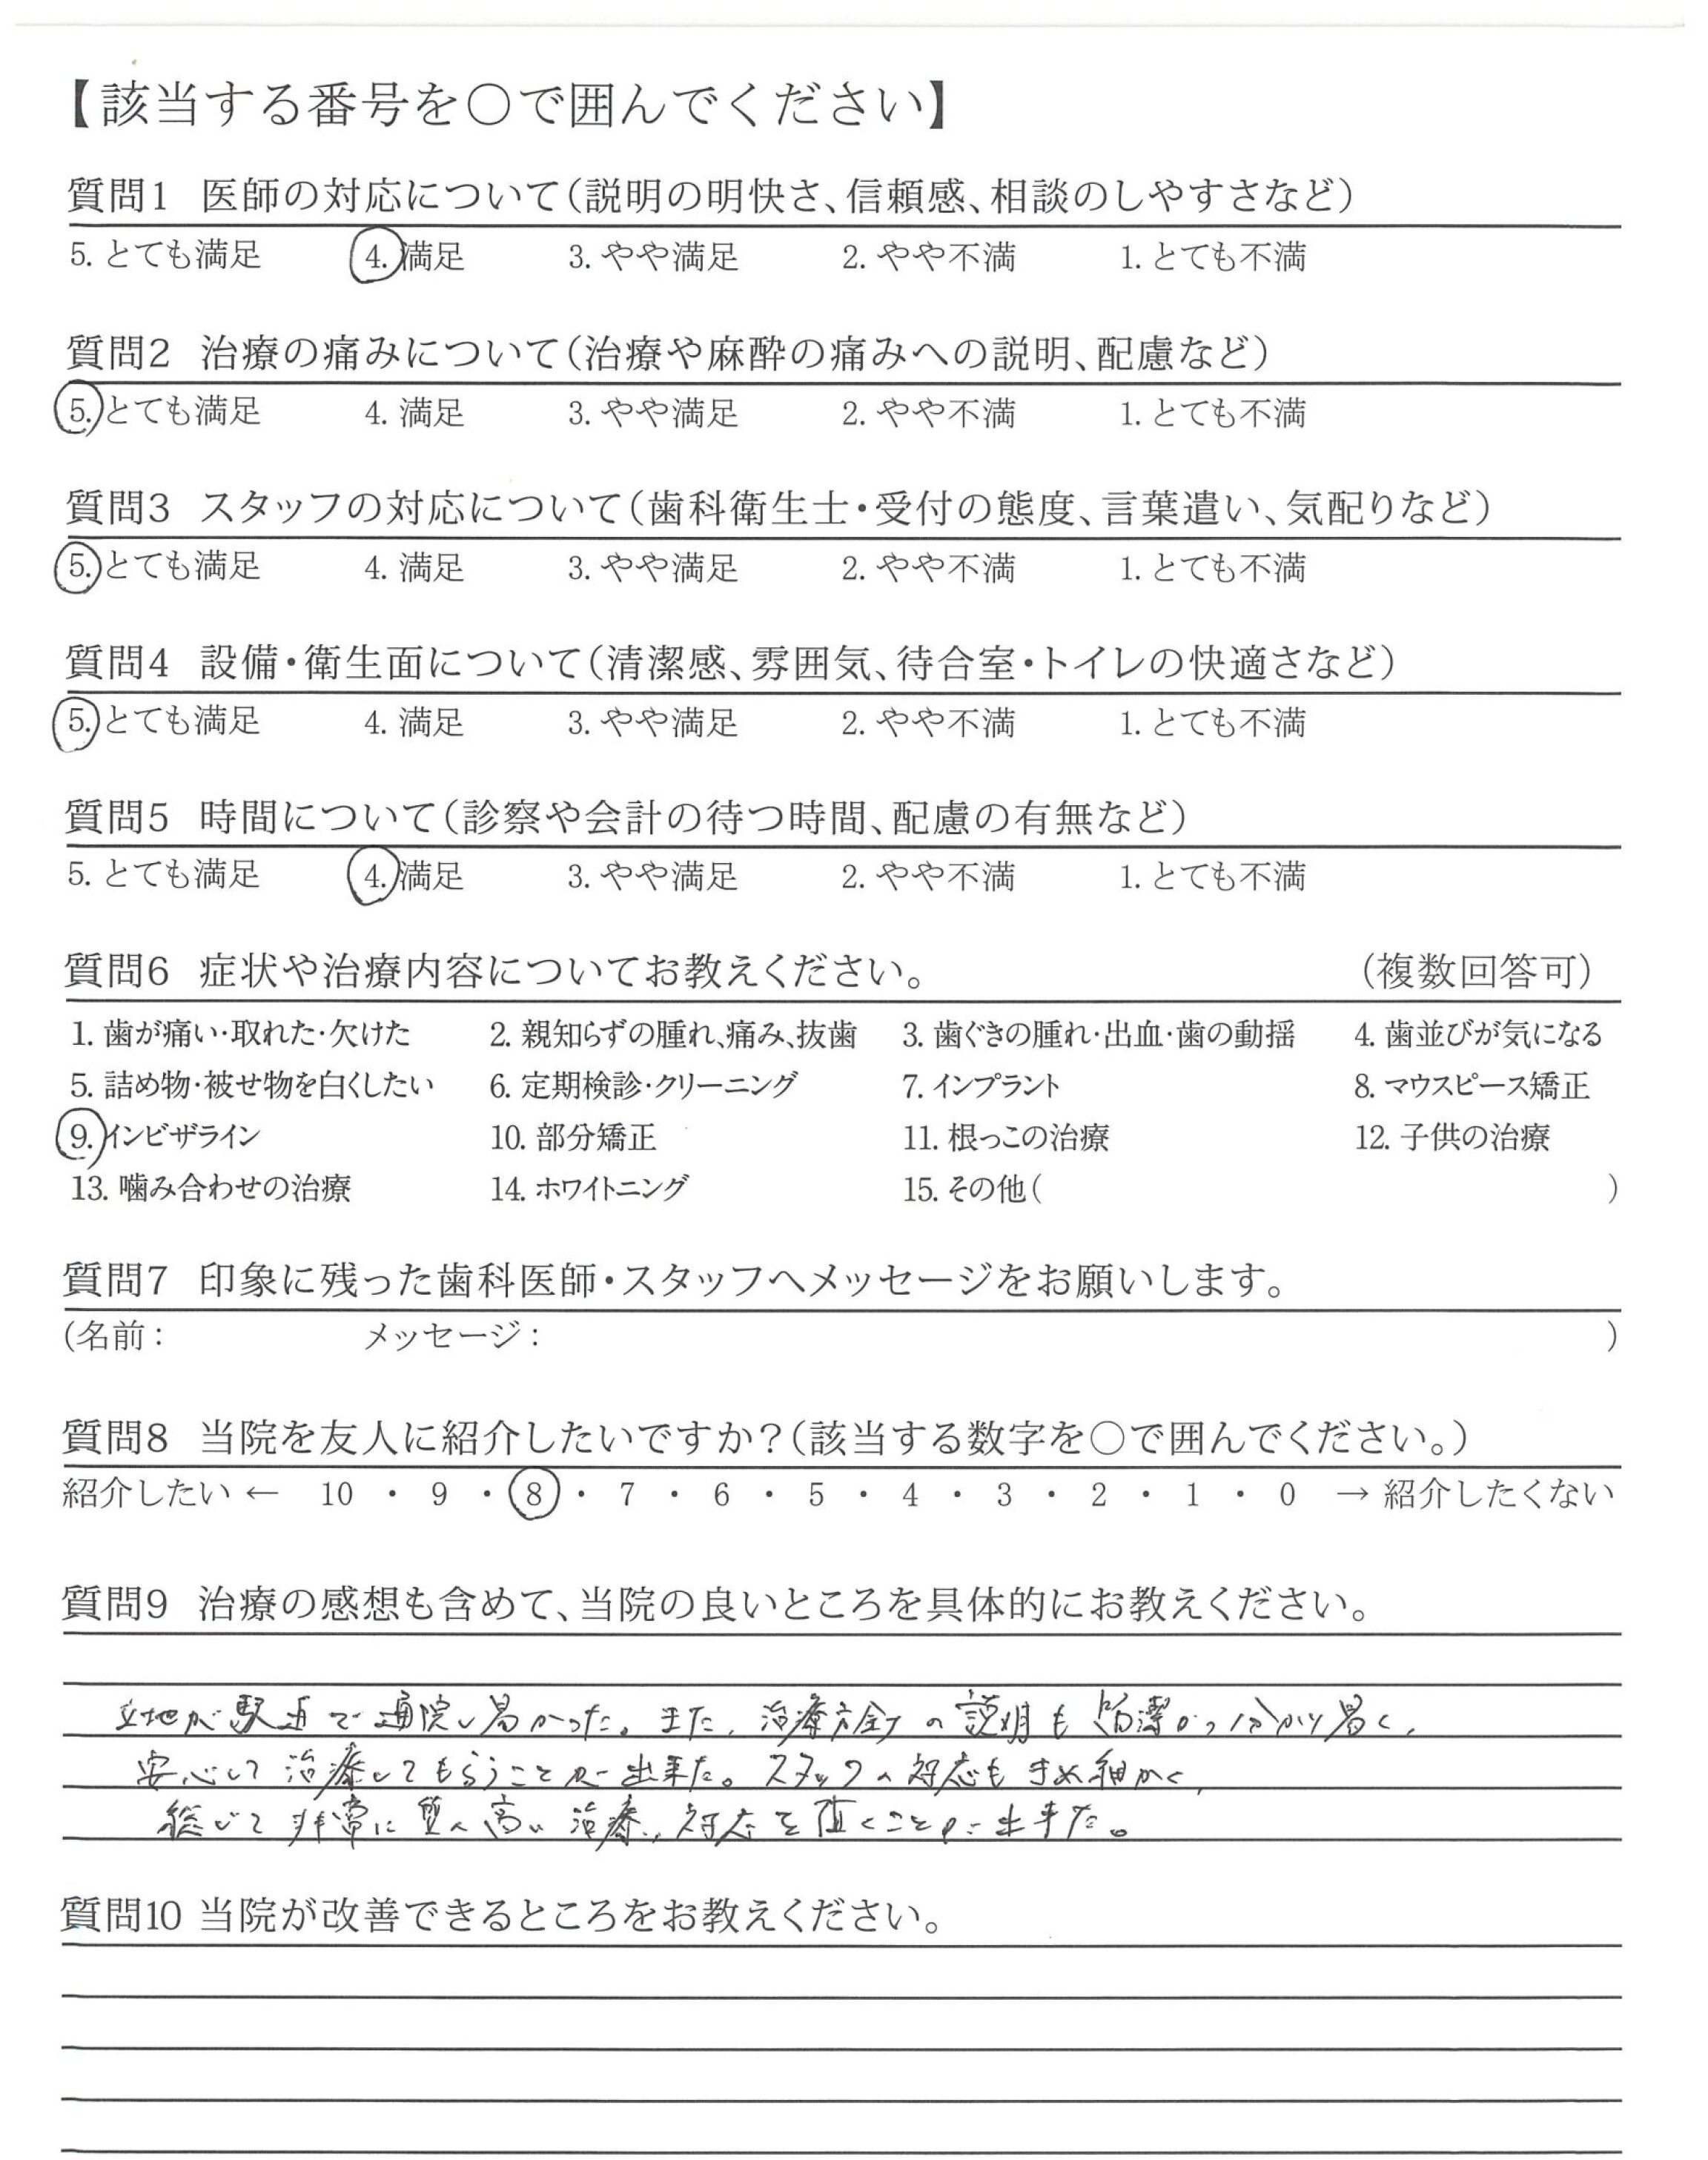 【該当する番号を〇で囲んでください】
質問1 医師の対応について(説明の明快さ、信頼感、相談のしやすさなど)
5. とても満足 4. 満足 3. やや満足 2. やや不満 1. とても不満
質問2 治療の痛みについて(治療や麻酔の痛みへの説明、配慮など)
5. とても満足 4. 満足 3. やや満足 2. やや不満 1. とても不満
質問3 スタッフの対応について(歯科衛生士・受付の態度、言葉遣い、気配りなど)
5. とても満足 4. 満足 3. やや満足 2. やや不満 1. とても不満
質問4 設備・衛生面について(清潔感、雰囲気、待合室・トイレの快適さなど)
5. とても満足 4. 満足 3. やや満足 2. やや不満 1. とても不満
質問5 時間について(診察や会計の待つ時間、配慮の有無など)
5. とても満足 4. 満足 3. やや満足 2. やや不満 1. とても不満
質問6 症状や治療内容についてお教えください。 (複数回答可)
1. 歯が痛い・取れた・欠けた 2. 親知らずの腫れ、痛み、抜歯 3. 歯ぐきの腫れ・出血・歯の動揺 4. 歯並びが気になる
5. 詰め物・被せ物を白くしたい 6. 定期検診・クリーニング 7. インプラント 8. マウスピース矯正
9. インビザライン 10. 部分矯正 11. 根っこの治療 12. 子供の治療
13. 噛み合わせの治療 14. ホワイトニング 15. その他( )
質問7 印象に残った歯科医師・スタッフへメッセージをお願いします。
(名前: メッセージ: )
質問8 当院を友人に紹介したいですか?(該当する数字を〇で囲んでください。)
紹介したい ← 10 ・ 9 ・ 8 ・ 7 ・ 6 ・ 5 ・ 4 ・ 3 ・ 2 ・ 1 ・ 0 → 紹介したくない
質問9 治療の感想も含めて、当院の良いところを具体的にお教えください。
立地が駅近で通院し易かった。また、治療方針の説明も簡潔かつ分かり易く、
安心して治療してもらうことが出来た。スタッフの対応もきめ細かく、
総じて非常に質の高い治療、対応を頂くことが出来た。
質問10 当院が改善できるところをお教えください。